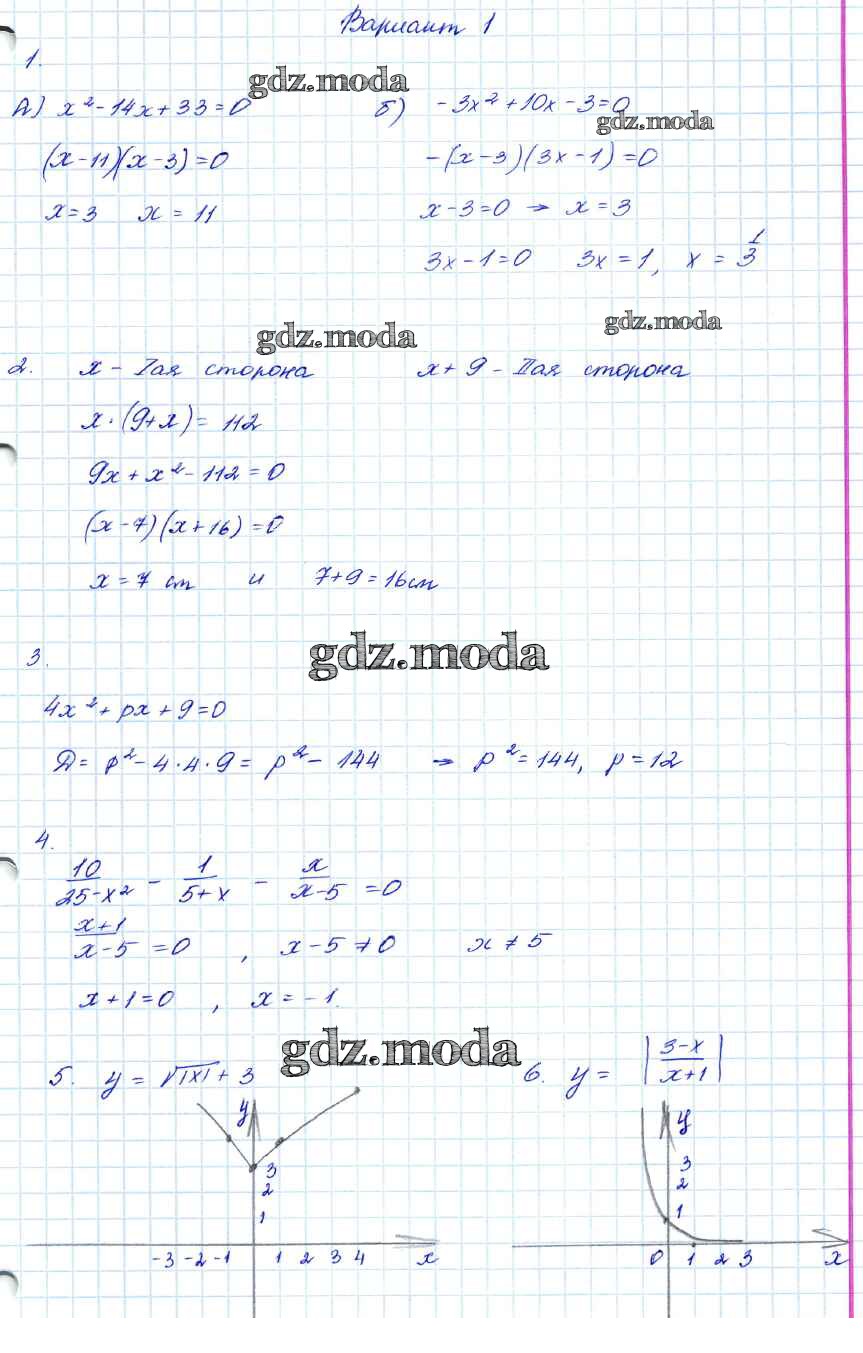 Вариант 1
1.
gdz.moda
А) x² - 14x + 33 = 0    б) -3x² + 10x - 3 = 0
gdz.moda
(x - 11)(x - 3) = 0    -(x - 3)(3x - 1) = 0
x = 3    x = 11    x - 3 = 0 → x = 3
3x - 1 = 0    3x = 1, x = 1/3
gdz.moda    gdz.moda
2. x - Iая сторона    x + 9 - IIая сторона
x · (9 + x) = 112
9x + x² - 112 = 0
(x - 7)(x + 16) = 0
x = 7 cm и 7 + 9 = 16 cm
gdz.moda
3.
4x² + px + 9 = 0
Д = p² - 4·4·9 = p² - 144 → p² = 144, p = 12
4.
10/(25 - x²) - 1/(5 + x) - x/(x - 5) = 0
(x + 1)/(x - 5) = 0, x - 5 ≠ 0    x ≠ 5
x + 1 = 0, x = -1.
gdz.moda
5. y = √|x| + 3    6. y = |(3 - x)/(x + 1)|
y    y
3    3
2    2
1    1
-3 -2 -1 1 2 3 4 x    0 1 2 3 x